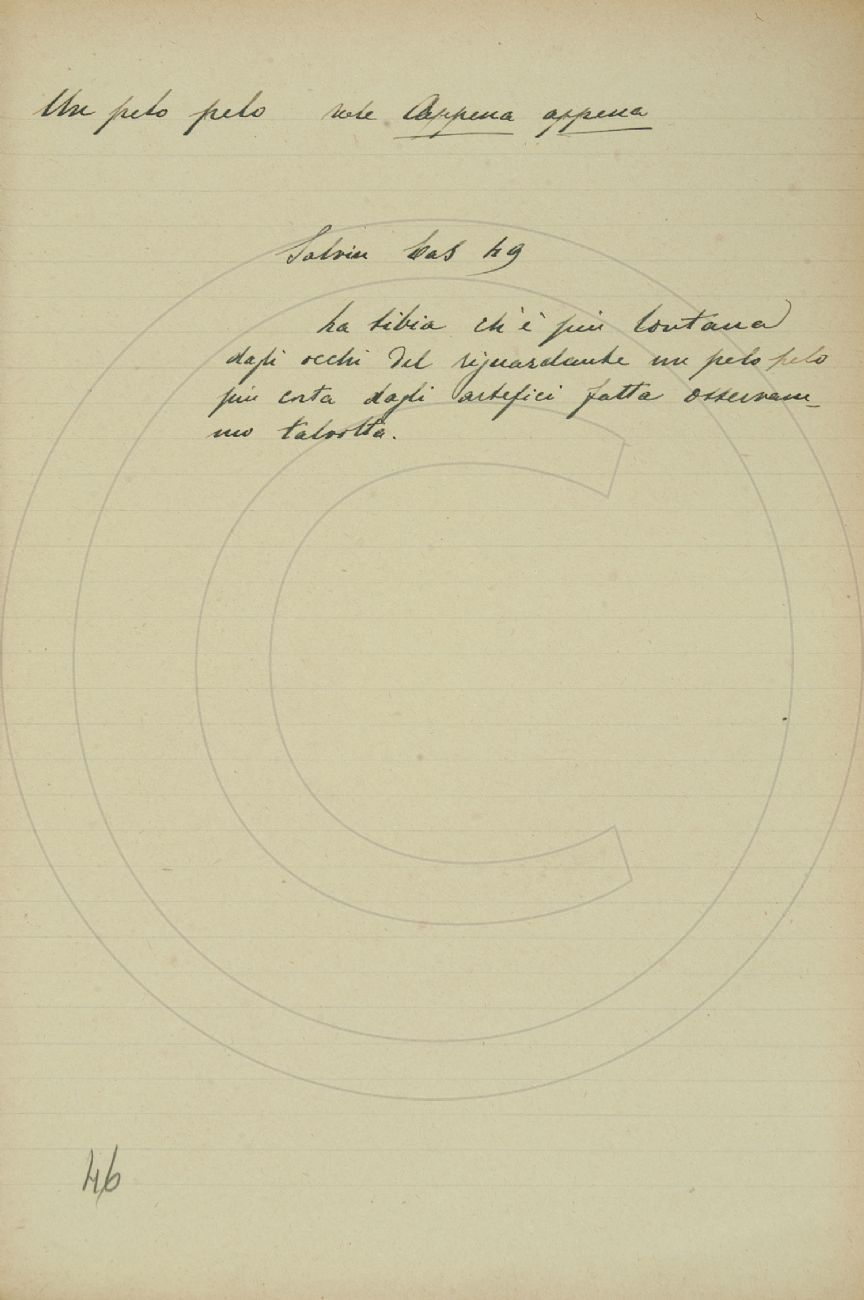 Un pelo pelo vale Appena appena
Salvin Cas 49
La tibia ch'è più lontana
dagli occhi del riguardante un pelo pelo
più corta dagli artefici fatta osservam-
mo talvolta.
46